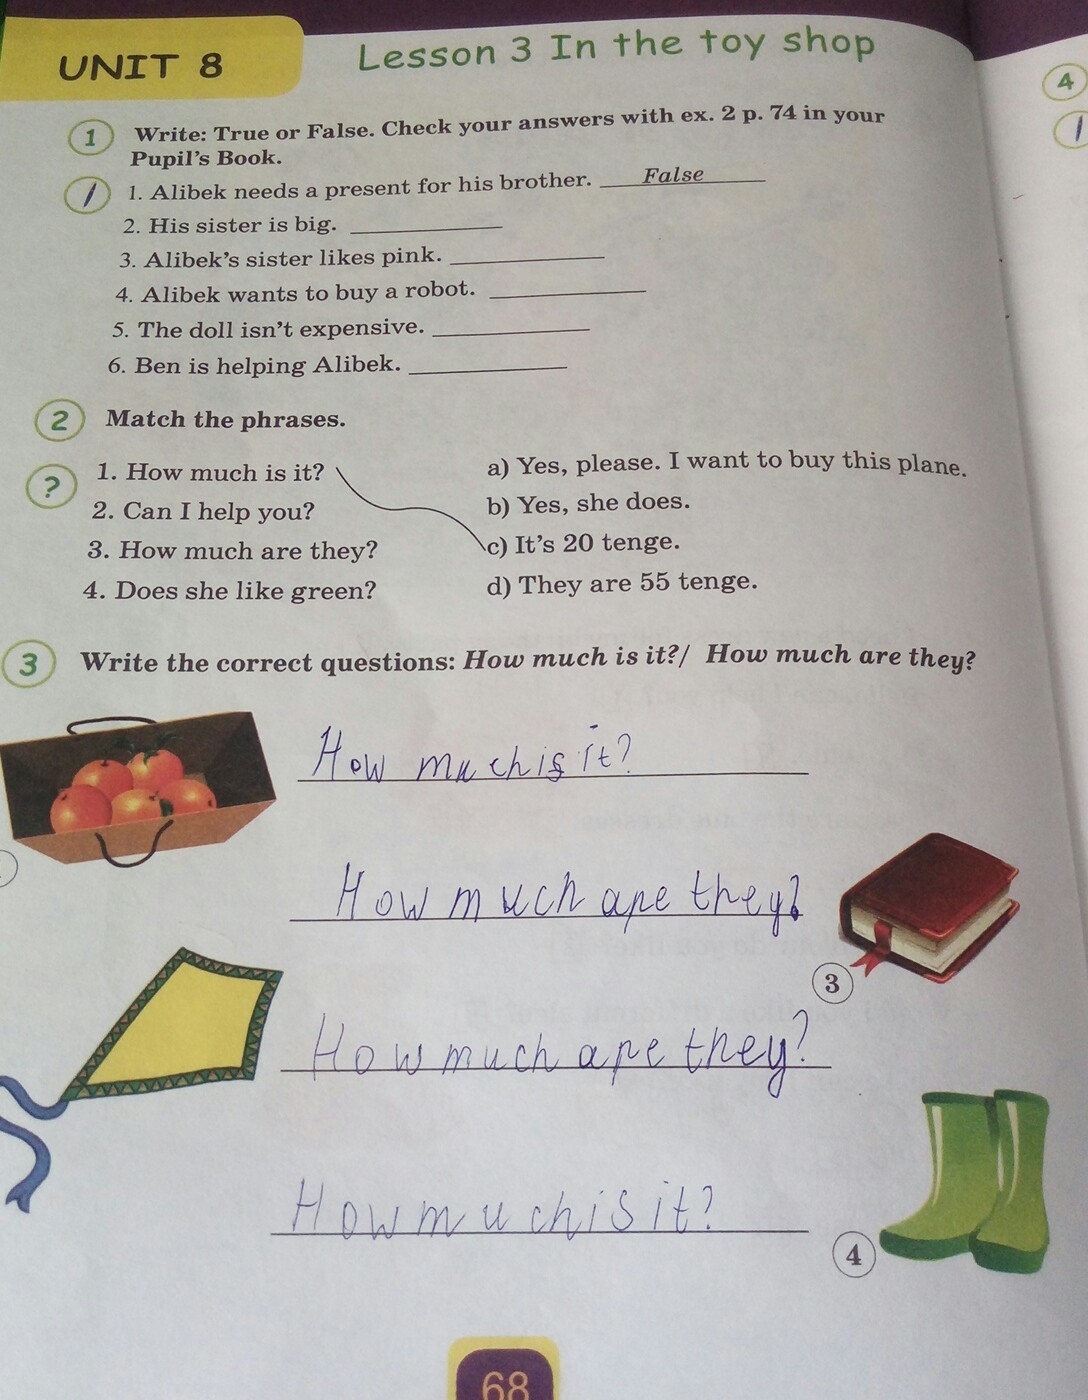 UNIT 8
Lesson 3 In the toy shop
4
1 Write: True or False. Check your answers with ex. 2 p. 74 in your
Pupil's Book.
1. Alibek needs a present for his brother. False
2. His sister is big.
3. Alibek's sister likes pink.
4. Alibek wants to buy a robot.
5. The doll isn't expensive.
6. Ben is helping Alibek.
2 Match the phrases.
?
1. How much is it?
2. Can I help you?
3. How much are they?
4. Does she like green?
a) Yes, please. I want to buy this plane.
b) Yes, she does.
c) It's 20 tenge.
d) They are 55 tenge.
3 Write the correct questions: How much is it?/ How much are they?
How much is it?
How much are they?
3
How much are they?
How much is it?
4
68